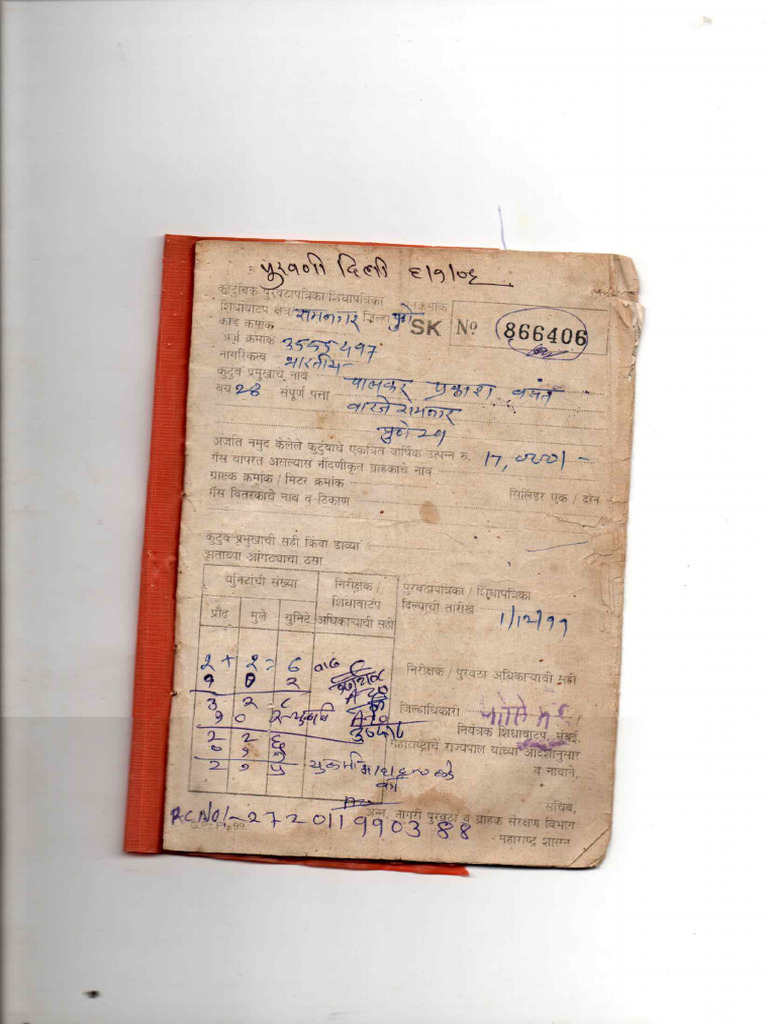 पुरवणी दिली ६/१/०६
कौटुंबिक पुरवठापत्रिका/शिधापत्रिका
शिधावाटप क्षेत्र रामनगर जिल्हा पुणे
SK Nº 866406
कार्ड क्रमांक
अर्ज क्रमांक
नागरिकत्व भारतीय
कुटुंब प्रमुखाचे नाव पालकर प्रकाश वसंत
वय 28 संपूर्ण पत्ता वारजे रामनगर
पुणे 29
अर्जात नमुद केलेले कुटुंबाचे एकत्रित वार्षिक उत्पन्न रु. 17,000/-
गॅस वापरत असल्यास नोंदणीकृत ग्राहकाचे नाव
ग्राहक क्रमांक / मिटर क्रमांक
गॅस वितरकाचे नाव व ठिकाण सिलिंडर एक / दोन
कुटुंब प्रमुखाची सही किंवा डाव्या
हाताच्या आंगठ्याचा ठसा
युनिटांची संख्या निरीक्षक / शिधावाटप अधिकाऱ्याची सही
प्रौढ मुले युनिटे
पुरवठापत्रिका / शिधापत्रिका
दिल्याची तारीख 1/12/99
२ + २ = ६ वाढ
१ ० २
३ २ ८
१ ० २
२ २ ६
० १
२ १ ५
निरीक्षक / पुरवठा अधिकाऱ्याची सही
जिल्हाधिकारी /
नियंत्रक शिधावाटप, मुंबई.
महाराष्ट्राचे राज्यपाल यांच्या आदेशानुसार
व नावाने,
सचिव,
अन्न, नागरी पुरवठा व ग्राहक संरक्षण विभाग
महाराष्ट्र शासन
R.C.No/-272011990388